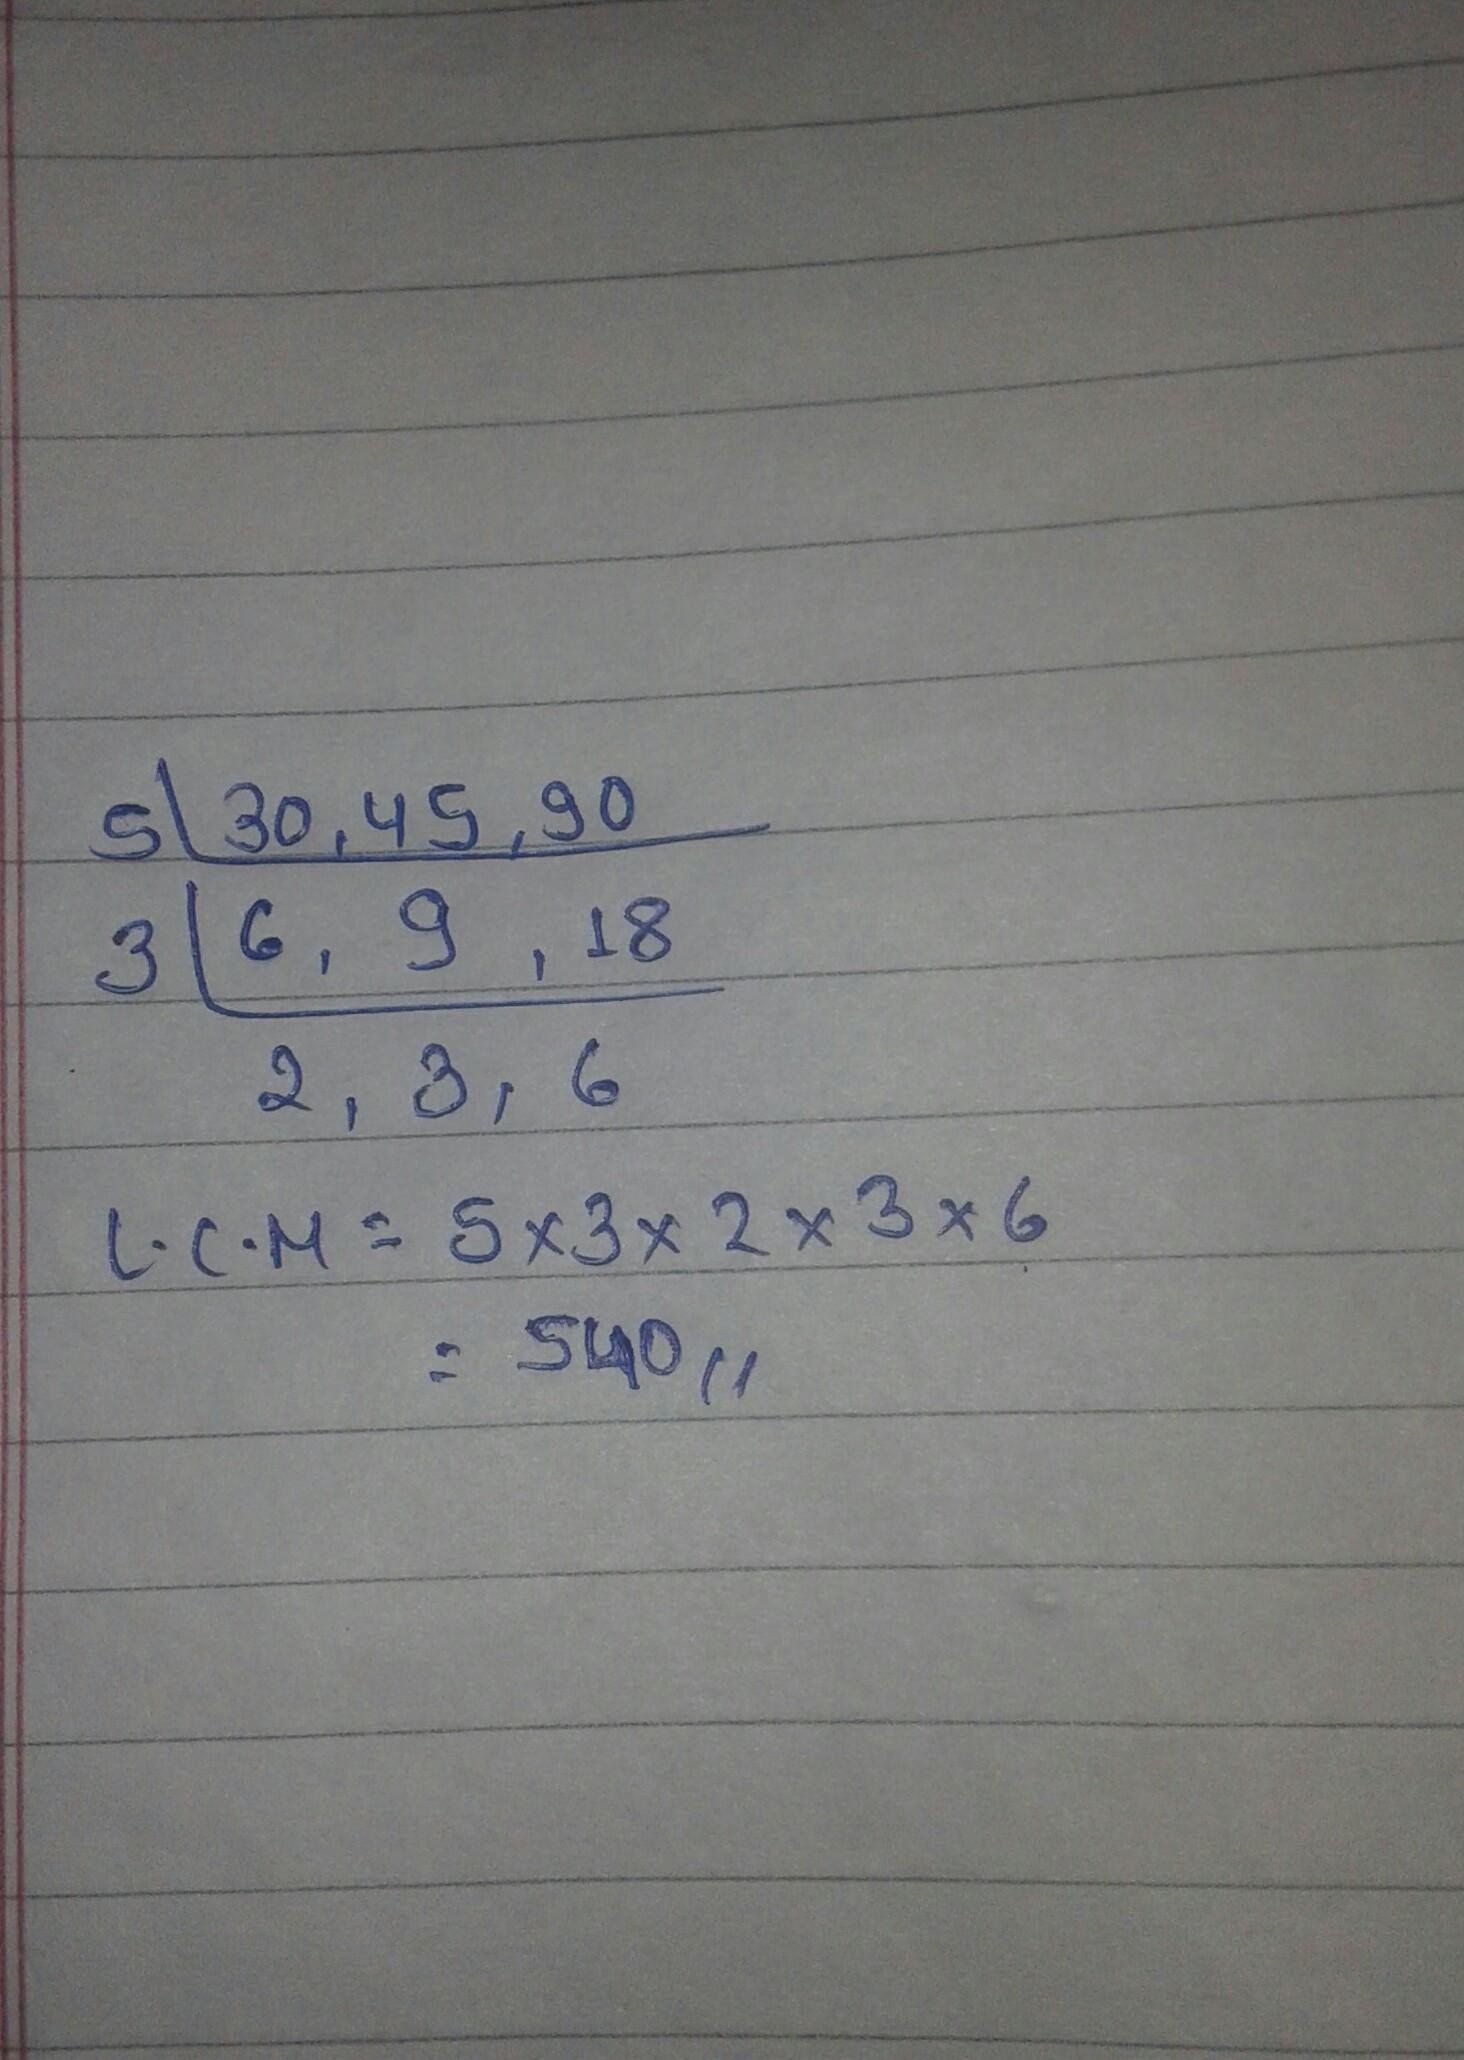 5 30, 45, 90
3 6, 9, 18
2, 3, 6
L.C.M = 5x3x2x3x6
= 540,,